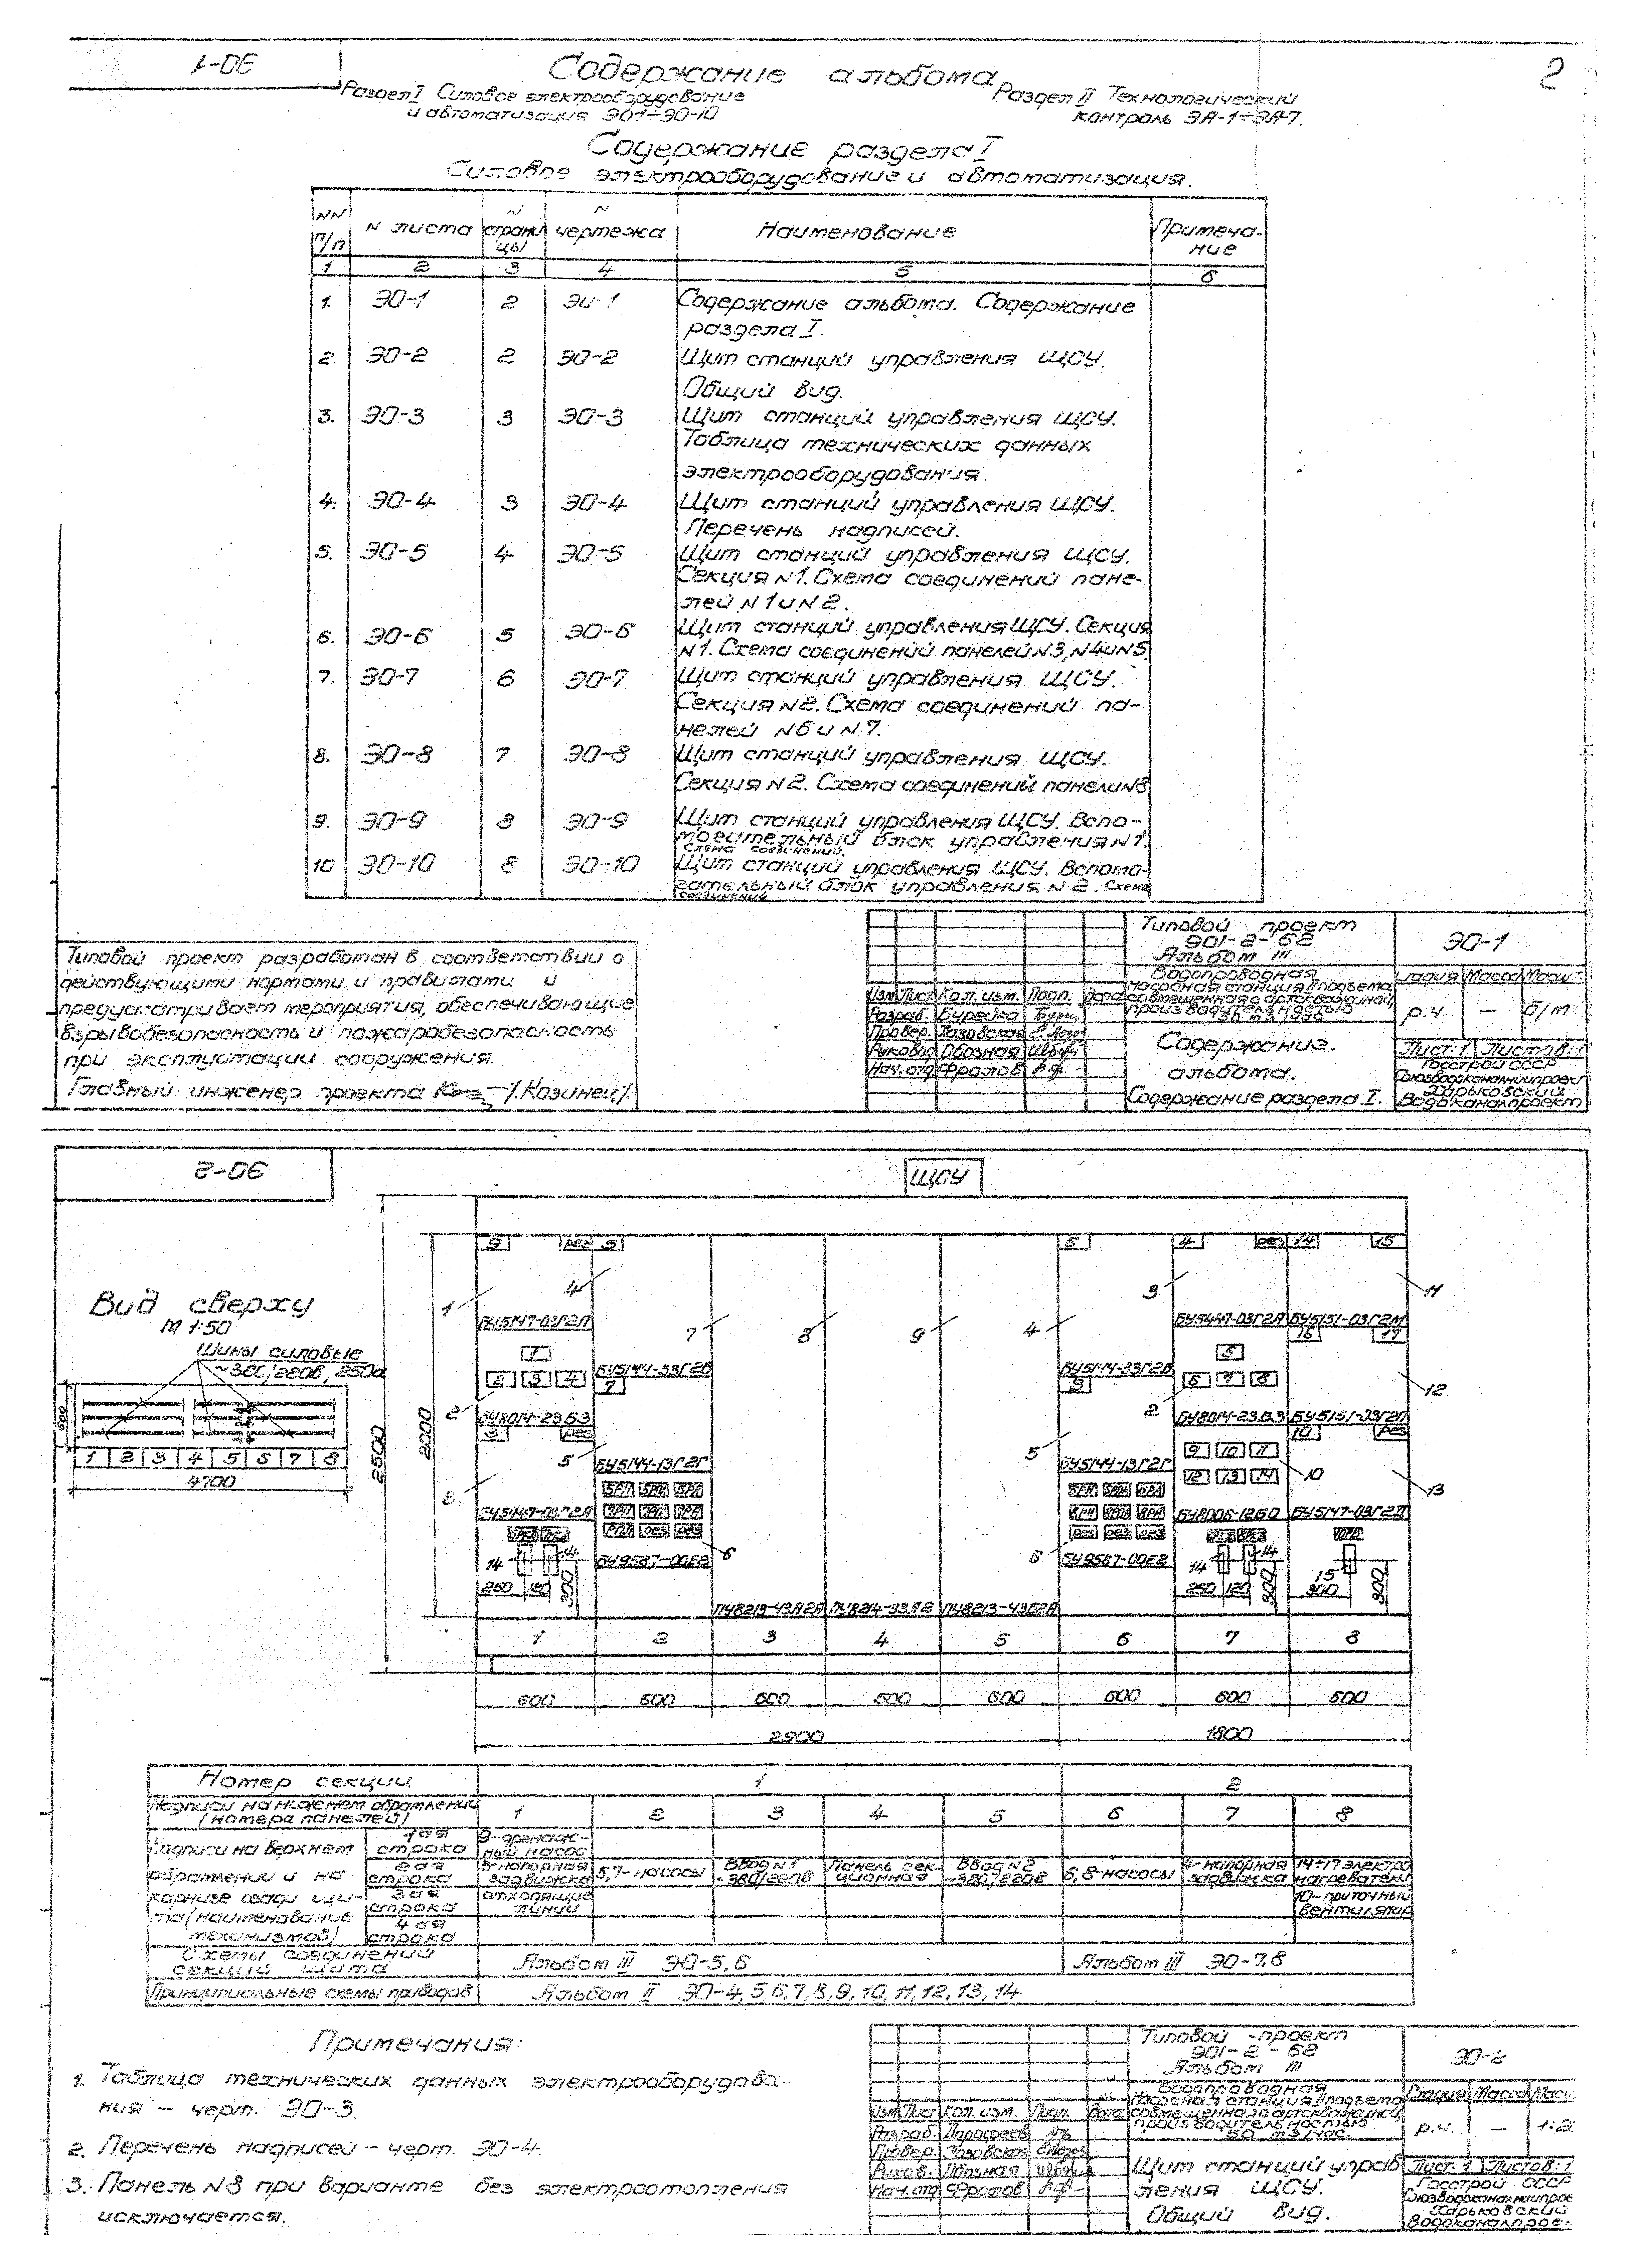 ЭО-1
Содержание альбома
2
Раздел I Силовое электрооборудование
и автоматизация ЭО1÷ЭО-10
Раздел II Технологический
контроль ЭА-1÷ЭА-7.
Содержание раздела I
Силовое электрооборудование и автоматизация.
NN п/п
N листа
N страницы
N чертежа
Наименование
Примеча-
ние
1 2 3 4 5 6
1. ЭО-1 2 ЭО-1 Содержание альбома. Содержание
раздела I.
2. ЭО-2 2 ЭО-2 Щит станций управления ЩСУ.
Общий вид.
3. ЭО-3 3 ЭО-3 Щит станций управления ЩСУ.
Таблица технических данных
электрооборудования.
4. ЭО-4 3 ЭО-4 Щит станций управления ЩСУ.
Перечень надписей.
5. ЭО-5 4 ЭО-5 Щит станций управления ЩСУ.
Секция N1. Схема соединений пане-
лей N1 и N2.
6. ЭО-6 5 ЭО-6 Щит станций управления ЩСУ. Секция
N1. Схема соединений панелей N3, N4 и N5.
7. ЭО-7 6 ЭО-7 Щит станций управления ЩСУ.
Секция N2. Схема соединений па-
нелей N6 и N7.
8. ЭО-8 7 ЭО-8 Щит станций управления ЩСУ.
Секция N2. Схема соединений панели N8
9. ЭО-9 8 ЭО-9 Щит станций управления ЩСУ. Вспо-
могательный блок управления N1.
Схема соединений.
10 ЭО-10 8 ЭО-10 Щит станций управления ЩСУ. Вспомо-
гательный блок управления N2. Схема
соединений
Типовой проект разработан в соответствии с
действующими нормами и правилами и
предусматривает мероприятия, обеспечивающие
взрывобезопасность и пожаробезопасность
при эксплуатации сооружения.
Главный инженер проекта /Казинец/.
Типовой проект
901-2-62
Альбом III
ЭО-1
Водопроводная
насосная станция II подъема
совмещенная с артскважиной
производительностью
50 м3/час
Стадия Масса Масш.
р.ч. — б/м
Изм Лист Кол. изм. Подп. Дата
Разраб. Бурейко
Провер. Лазовская
Руковод Обозная
Нач. отд Фролов
Содержание
альбома.
Содержание раздела I.
Лист: 1 Листов: 1
Госстрой СССР
Союзводоканалниипроект
Харьковский
Водоканалпроект
ЭО-2
ЩСУ
Вид сверху
М 1:50
Шины силовые
~380/220В, 250а
600
1 2 3 4 5 6 7 8
4700
2500
2000
9 рез 5 6 4 рез 14 15
1 4 7 8 9 4 3 11
БУ5147-03Г2П
БУ5447-03Г2А БУ5151-03Г2М
16 17
1
2 3 4
БУ5144-33Г2В
7
БУ5144-33Г2В
5
6 7 8
12
2
БУ8014-23Б3
БУ8014-23В3 БУ5151-03Г2П
3 рез
10 рез
5
БУ5144-13Г2Г
БУ5144-13Г2Г
9 10 11
12 13 14
10
13
БУ8006-12Б0 БУ5147-03Г2П
БУ9587-00Е2
БУ9587-00Е2
6
14 14
250 120 300
14 14
250 120 300
15
300 300
ПУ8213-43А2А ПУ8214-33А2 ПУ8213-43Б2А
1 2 3 4 5 6 7 8
600 600 600 500 600 600 600 600
2900 1800
Номер секции 1 2
Надписи на нижнем обрамлении
(номера панелей) 1 2 3 4 5 6 7 8
Надписи на верхнем
обрамлении и на
карнизе сзади щи-
та (наименование
механизмов)
1ая строка 9-дренаж-
ный насос
2ая строка 5-напорная
задвижка
5,7-насосы
Ввод N1
~380/220В
Панель сек-
ционная
Ввод N2
~380/220В
6,8-насосы
4-напорная
задвижка
14÷17 электро
нагреватели
3ая строка отходящие
линии
10-приточный
вентилятор
4ая строка
Схемы соединений
секций щита
Альбом III ЭО-5,6
Альбом III ЭО-7,8
Принципиальные схемы приводов
Альбом II ЭО-4, 5,6,7,8,9,10,11,12,13,14
Примечания:
1. Таблица технических данных электрооборудова-
ния — черт. ЭО-3.
2. Перечень надписей — черт. ЭО-4.
3. Панель N8 при варианте без электроотопления
исключается.
Типовой проект
901-2-62
Альбом III
ЭО-2
Водопроводная
насосная станция II подъема
совмещенная с артскважиной
производительностью
50 м3/час.
Стадия Масса Масш
р.ч. — 1:2
Изм Лист Кол. изм. Подп. Дата
Разраб.
Провер. Лазовская
Руков. Обозная
Нач. отд Фролов
Щит станций управ
ления ЩСУ.
Общий вид.
Лист: 1 Листов: 1
Госстрой СССР
Союзводоканалниипрое
Харьковский
Водоканалпрое-